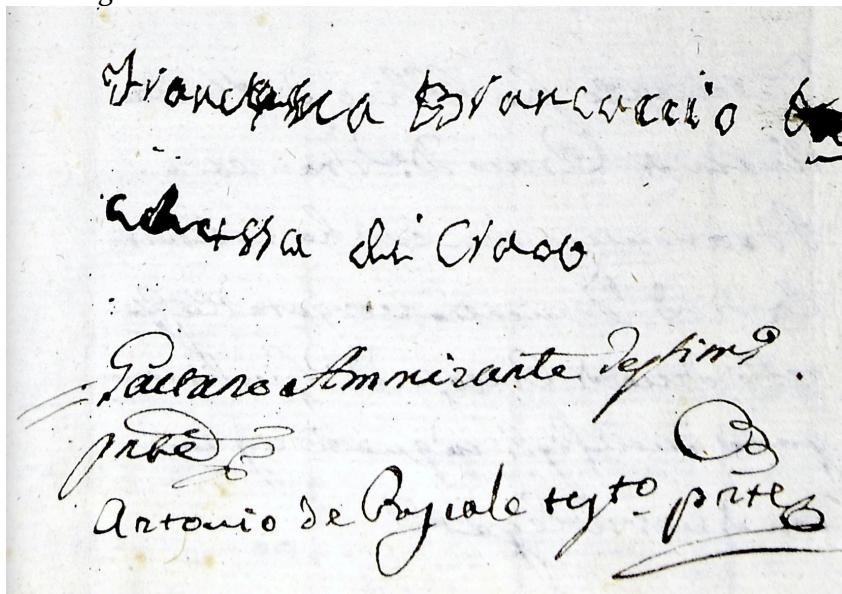 Francesca Brancaccio
di Craco
Gaetano Ammirante Testimo
pnte
Antonio de Pascale testo pnte